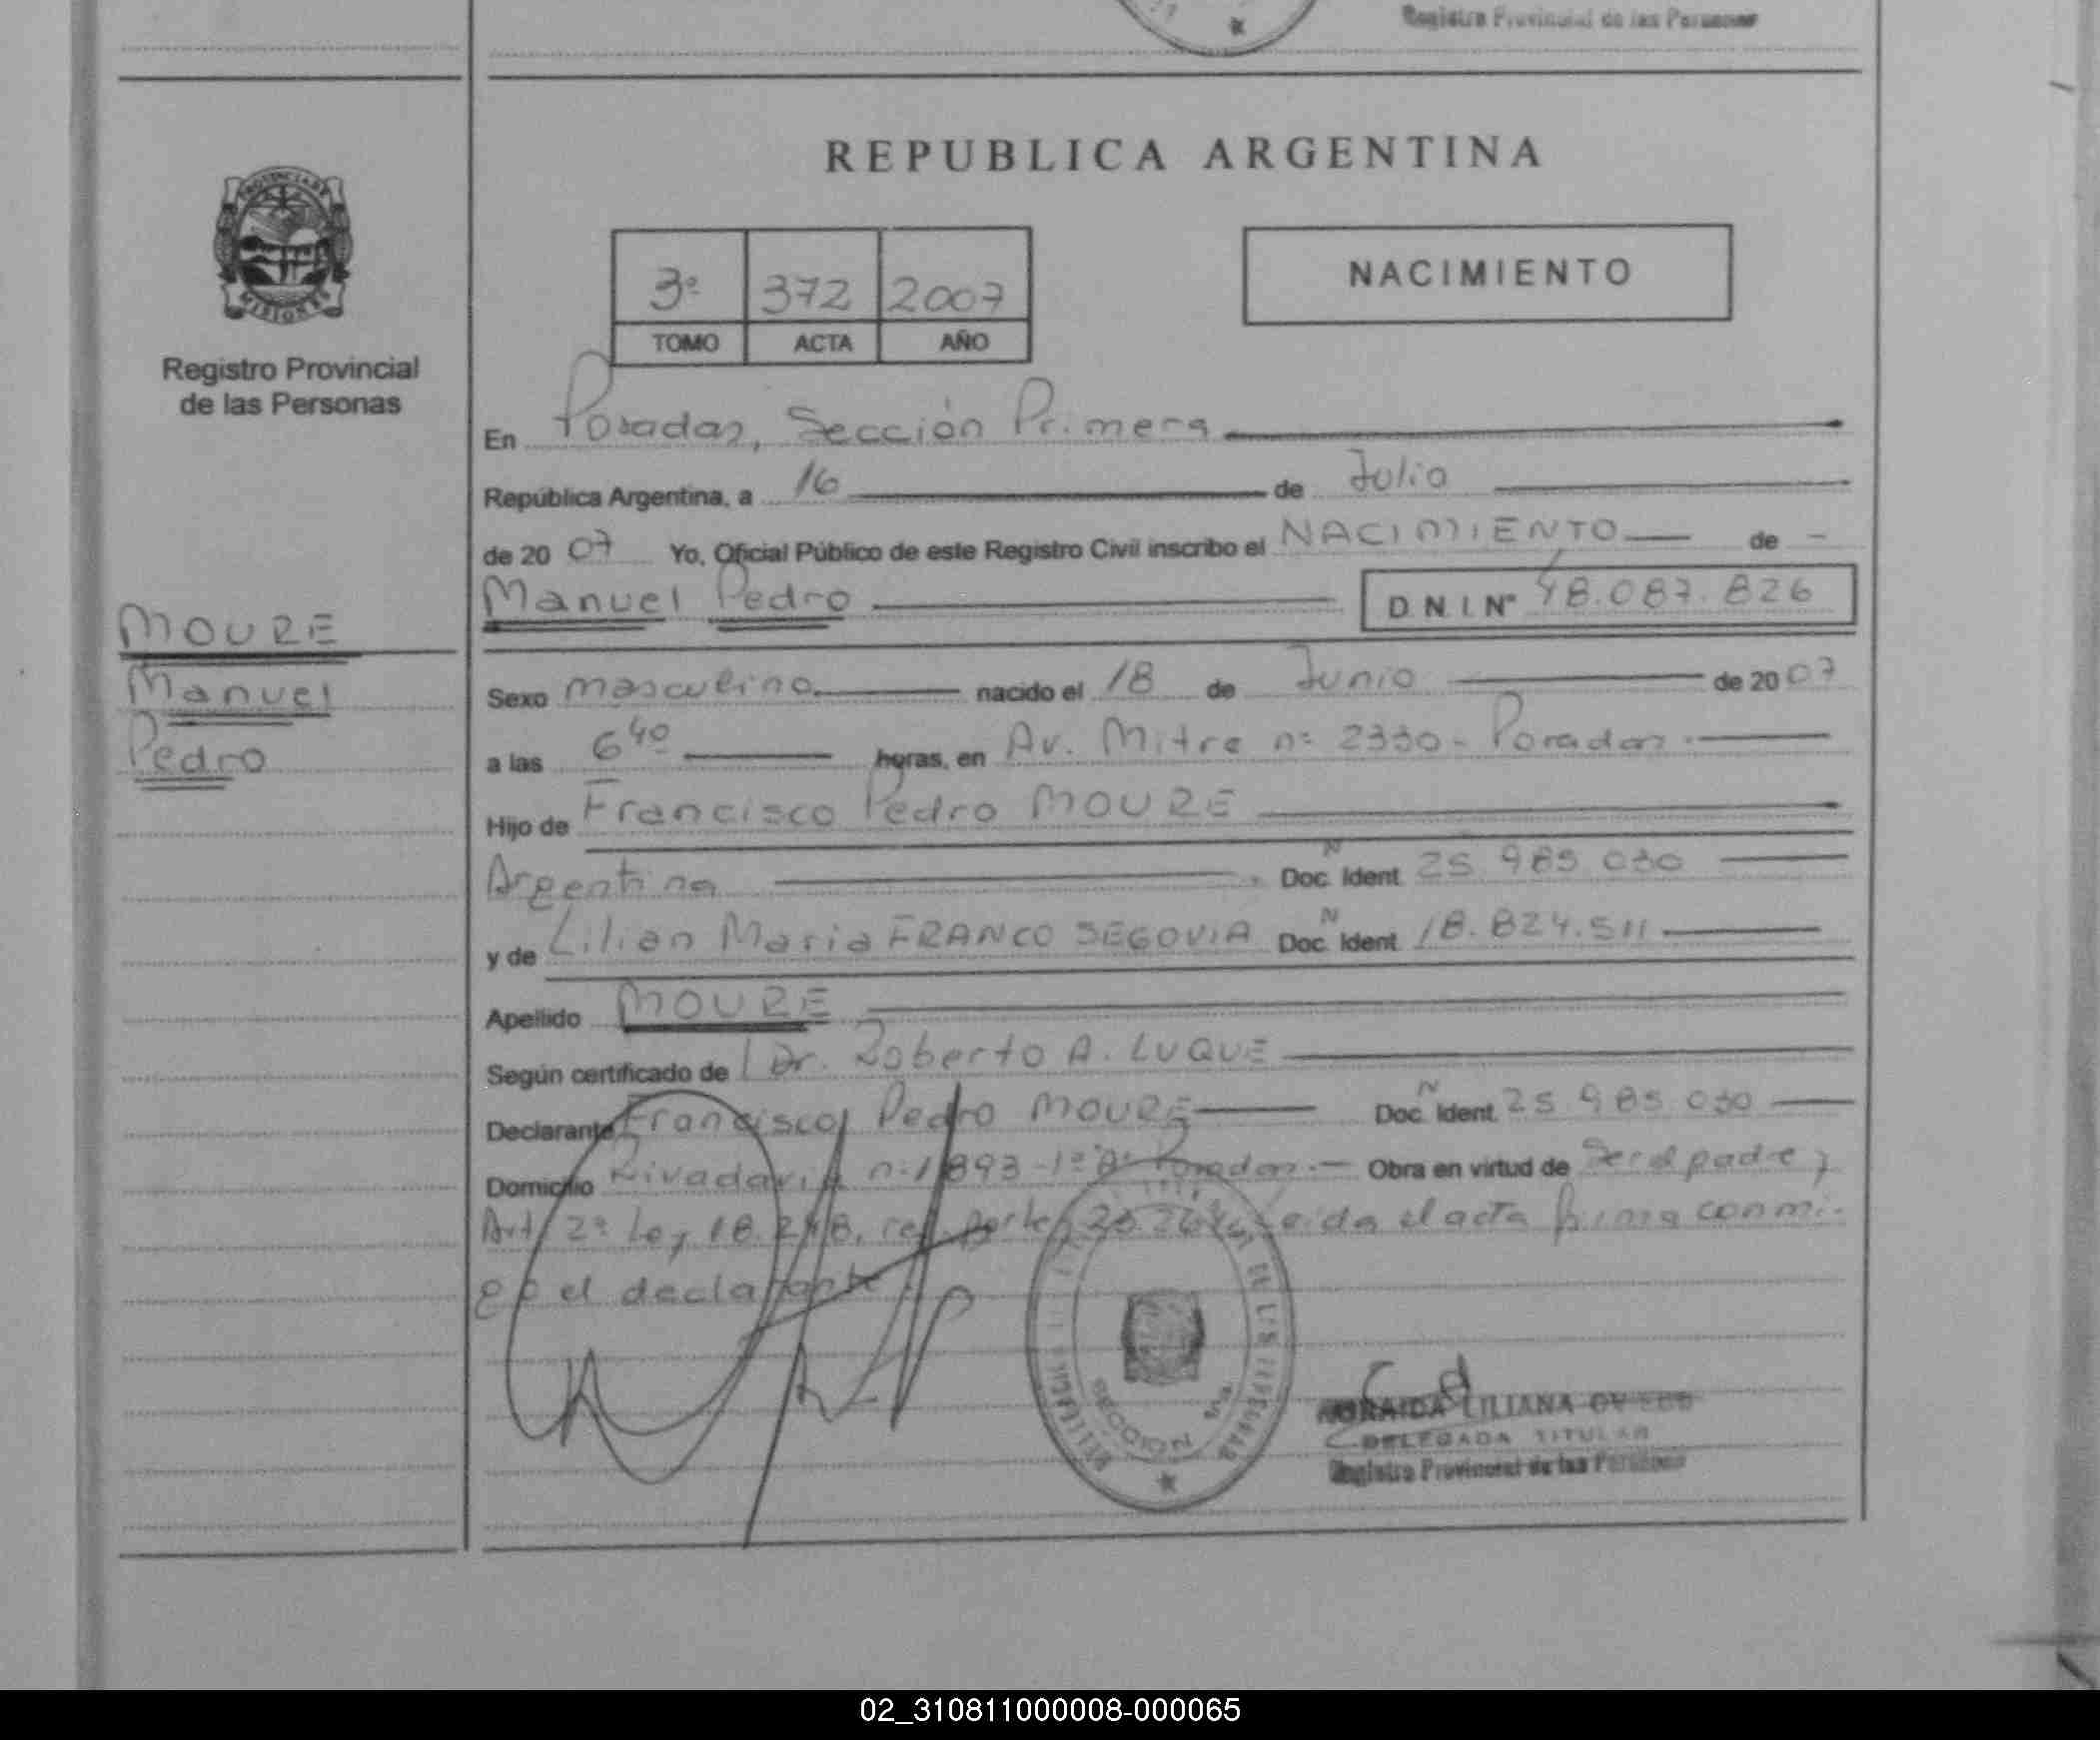 Registro Provincial de las Personas
REPUBLICA ARGENTINA
PROVINCIA DE
MISIONES
Registro Provincial
de las Personas
3º 372 2007
TOMO ACTA AÑO
NACIMIENTO
En Posadas, Sección Primera
República Argentina, a 16 de Julio
de 2007 Yo, Oficial Público de este Registro Civil inscribo el NACIMIENTO de
Manuel Pedro D.N.I. Nº 48.087.826
MOURE
Manuel
Pedro
Sexo masculino nacido el 18 de Junio de 2007
a las 6 40 horas, en Av. Mitre nº 2330 - Posadas.
Hijo de Francisco Pedro MOURE
Argentina Doc. Ident. 25 985 030
y de Lilian Maria FRANCO SEGOVIA Doc. Ident. 18.824.511
Apellido MOURE
Según certificado de Dr. Roberto A. LUQUE
Declarante Francisco Pedro MOURE Doc. Ident. 25 985 030
Domicilio Rivadavia nº 1893 - 1º Posadas. Obra en virtud de Ser el padre y
Art. 2º Ley 18.248, Leida el acta firma conmi-
go el declarante.
SECCION 1ra.
LILIANA
DELEGADA TITULAR
Registro Provincial de las Personas
02_310811000008-000065